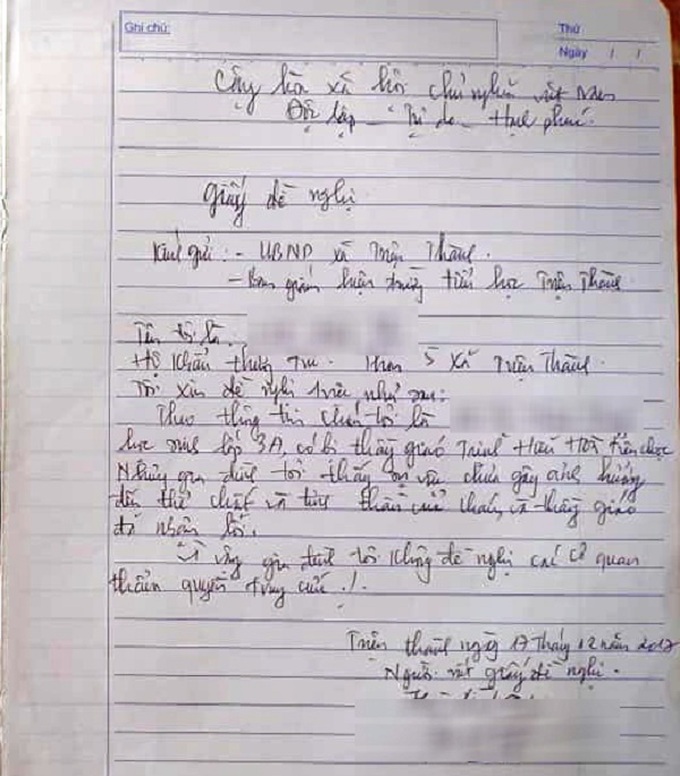 Ghi chú:
Thứ
Ngày / /
Cộng hòa xã hội chủ nghĩa việt Nam
Độc lập - Tự do - Hạnh phúc.
giấy đề nghị
Kính gửi: - UBND xã Triệu Thành.
- Ban giám hiệu trường tiểu học Triệu Thành
Tên tôi là:
Hộ khẩu thường trú. Thôn 5 xã Triệu Thành.
Tôi xin đề nghị việc như sau:
Theo thông tin cháu tôi là
học sinh lớp 3A, có bị thầy giáo Trịnh Hữu
Nhưng gia đình tôi thấy sự việc chưa gây ảnh hưởng
đến thể chất và tinh thần của cháu, và thầy giáo
đã nhận lỗi.
Vì vậy gia đình tôi không đề nghị các cơ quan
thẩm quyền truy cứu./.
Triệu thành ngày 17 tháng 12 năm 2017
Người viết giấy đề nghị.